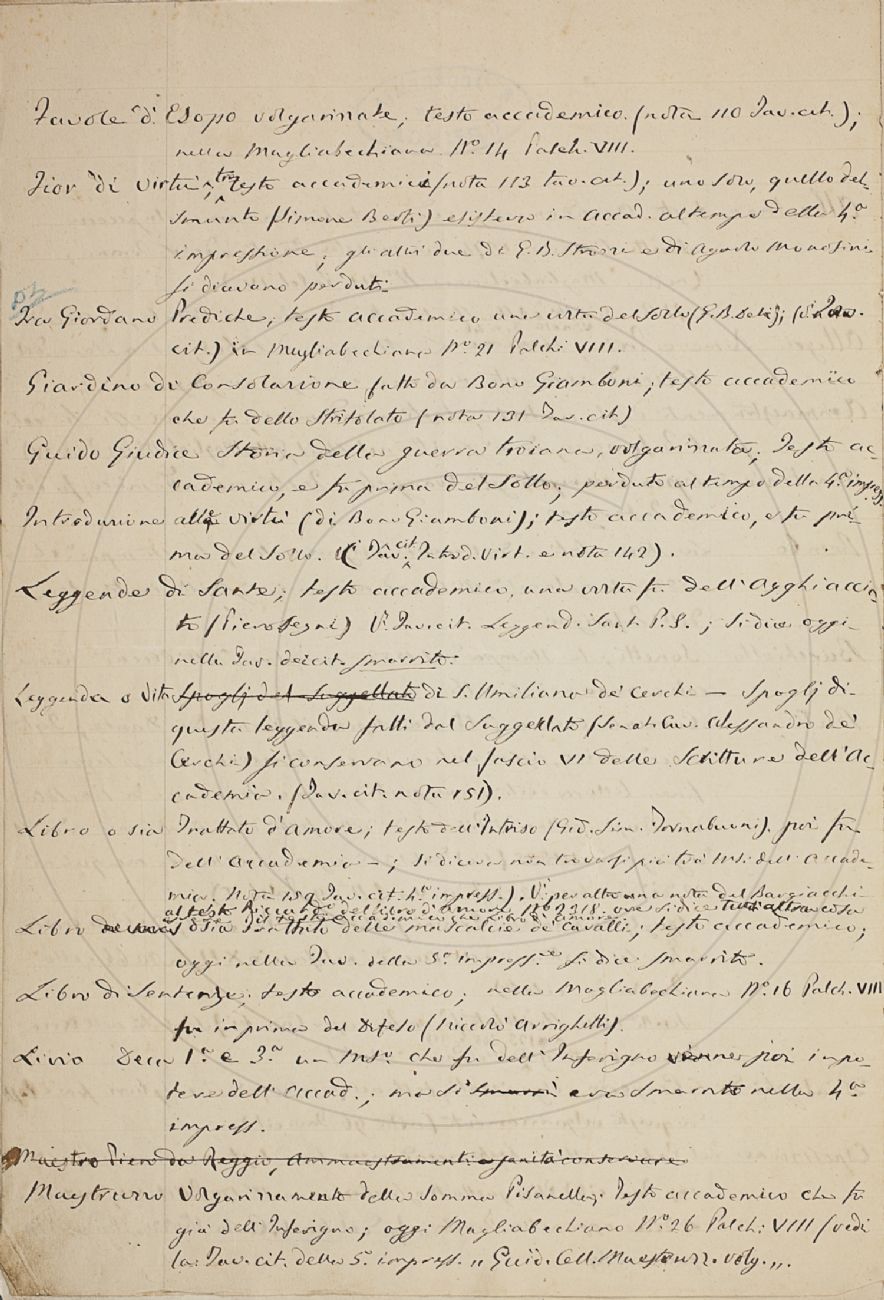 Favole d'Esopo volgarizzate; testo accademico. (nota 110 Tav. cit.);
nella Magliabechiana N.º 14 Palch. VIII.
Fior di virtù, tre testi accademici (nota 113 tav. cit.); uno solo, quello del
Smunto (Simone Berti) esisteva in Accad. al tempo della 4.ª
impressione; gli altri due di G. B. Strozzi e di Agnolo Monosini
si dicevano perduti.
Fra Giordano Prediche; testo accademico una volta del Sollo (G. B. Deti); (v. Tav.
cit.) in Magliabechiana N.º 21 Palch. VIII.
Giardino di Consolazione fatto da Bono Giamboni; testo accademico
che fu dello Stritolato (nota 131 Tav. cit.)
Guido Giudice Storia della guerra troiana, volgarizzata; Testo ac-
cademico, e fu prima del Sollo; perduto al tempo della 4.ª impress.
Introduzione alle virtù (di Bono Giamboni); testo accademico, e fu pri-
ma del Sollo. (V. Tav. cit. Introd. Virt. e nota 142).
Leggende di Sante; testo accademico, una volta fu dell'Agghiaccia-
to (Piero Segni) V. Tav. cit. Leggend. Sant. P. S.; si dice oggi
nella Tav. dei cit. smarrito.
Leggenda o Vita Spoglj del Suggellato di S. Umiliana de' Cerchi — Spoglj di
questa leggenda fatti dal Suggellato (Senat. Cav. Alessandro de'
Cerchi) si conservano nel fascio VI delle Scritture dell'Ac-
cademia. (Tav. cit. nota 151).
Libro o sia Trattato d'Amore; testo dell'Intriso (Gio. Sim. Tornabuoni) poi fu
dell'Accademia —; si diceva non trovarsi più tra i MSi. dell'Accade-
mia. Nota 159 Tav. cit. 4.ª impress.). V. per altro una nota del Bargiacchi
al testo del libro d'Amore ove si dice tutt'altra cosa
Libro o sia Trattato delle mascalcie de' cavalli; testo accademico;
oggi nella Tav. della 5.ª impress.ne si dice smarrito.
Libro di Sentenze; testo accademico; nella Magliabechiana N.º 16 Palch. VIII
fu in prima del Difeso (Niccolò Arrighetti).
Livio Deca 1.ª e 3.ª un MSo. che fu dell'Inferigno venne poi in po-
tere dell'Accad.; ma si smarrì era smarrito nella 4.ª
impress.
Maestro Piero da Reggio, Ammaestramenti a sanità conservare
Maestruzzo Volgarizzamento della Somma Pisanella; Testo accademico che fu
già dell'Inferigno; oggi Magliabechiano N.º 26 Palch. VIII (vedi
la Tav. cit. della 5.ª impress. „ Guid. Cell. Maestruzz. volg. „.